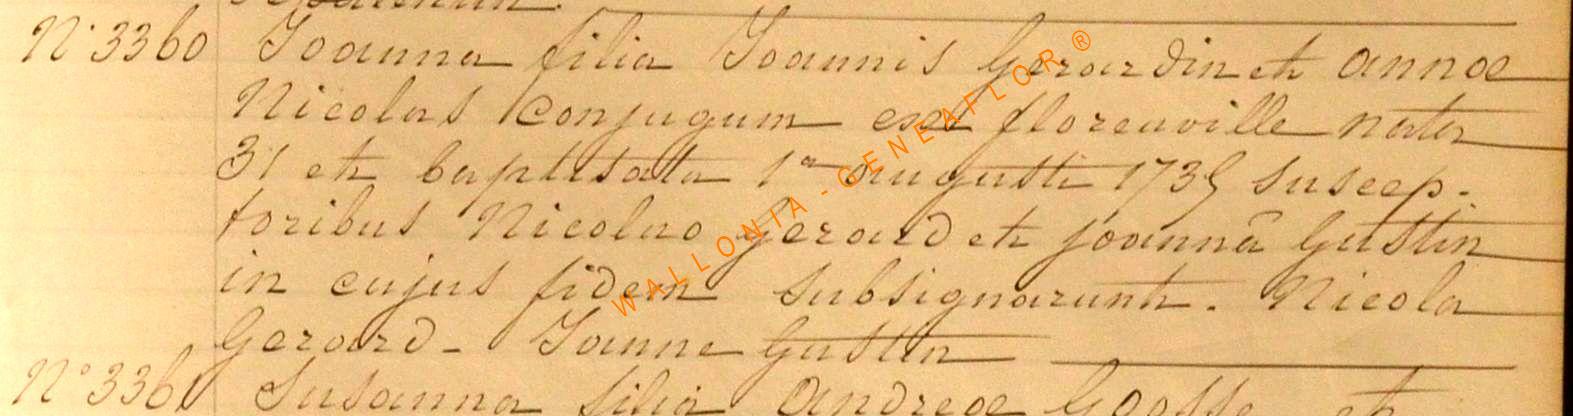 N° 3360 Joanna filia Joannis Gerardin et annae
Nicolas conjugum ex florenville nata
31 et baptisata 1a augusti 1735 suscep-
toribus Nicolao gerard et joannâ Gustin
in cujus fidem subsignarunt. Nicola
Gerard - Jeanne Gustin
N° 3361 Susanna filia Andreae Goosse et
WALLONIA - GENEAFLOR ®